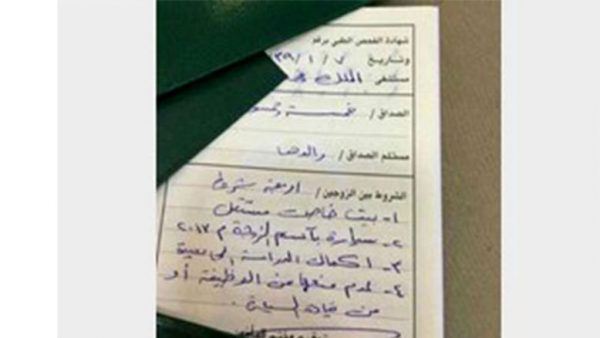 شهادة الفحص الطبي برقم
وتاريخ ٧ / ١ / ٣٩
مستشفى الملك
الصداق / خمسة
مستلم الصداق / والدها
الشروط بين الزوجين / اربعة شروط
١- بيت خاص مستقل
٢- سيارة باسم الزوجة م ٢٠١٣
٣- اكمال الدراسة
٤- عدم منعها من الوظيفة أو
من قيادة السيارة .